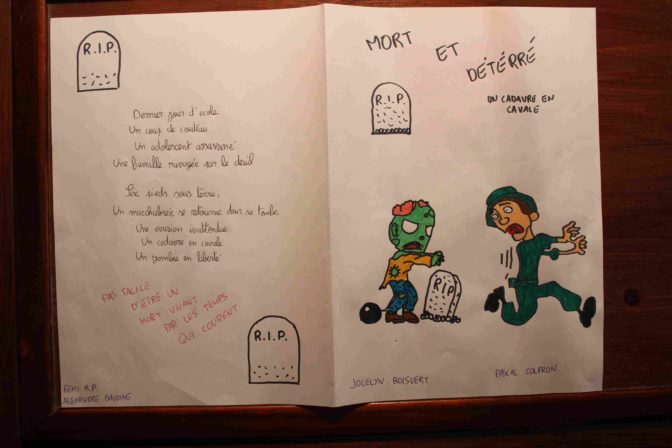 R.I.P.
Dernier jour d'école
Un coup de couteau
Un adolescent assassiné
Une famille ravagée par le deuil
Six pieds sous terre,
Un macchabée se retourne dans sa tombe
Une évasion inattendue
Un cadavre en cavale
Un zombie en liberté
PAS FACILE
D'ÊTRE UN
MORT VIVANT
PAR LES TEMPS
QUI COURENT
R.I.P.
REMI B.P.
ALEXANDRE
MORT ET DÉTÉRRÉ
UN CADAVRE EN
CAVALE
R.I.P.
RIP
JOCELYN BOISVERT
PASCAL COLPRON